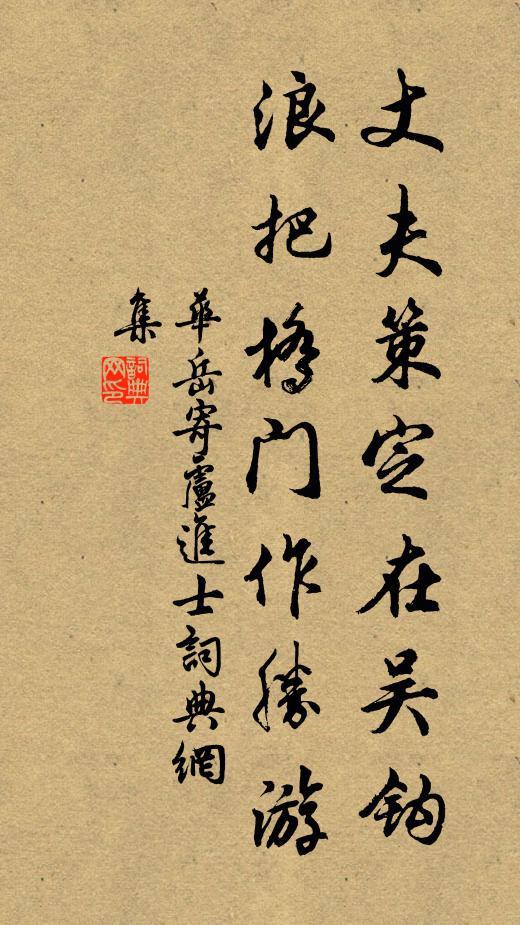 丈夫策定在吴钩
浪把橋門作勝游
華岳寄盧進士詞典網
集
詞典
网印